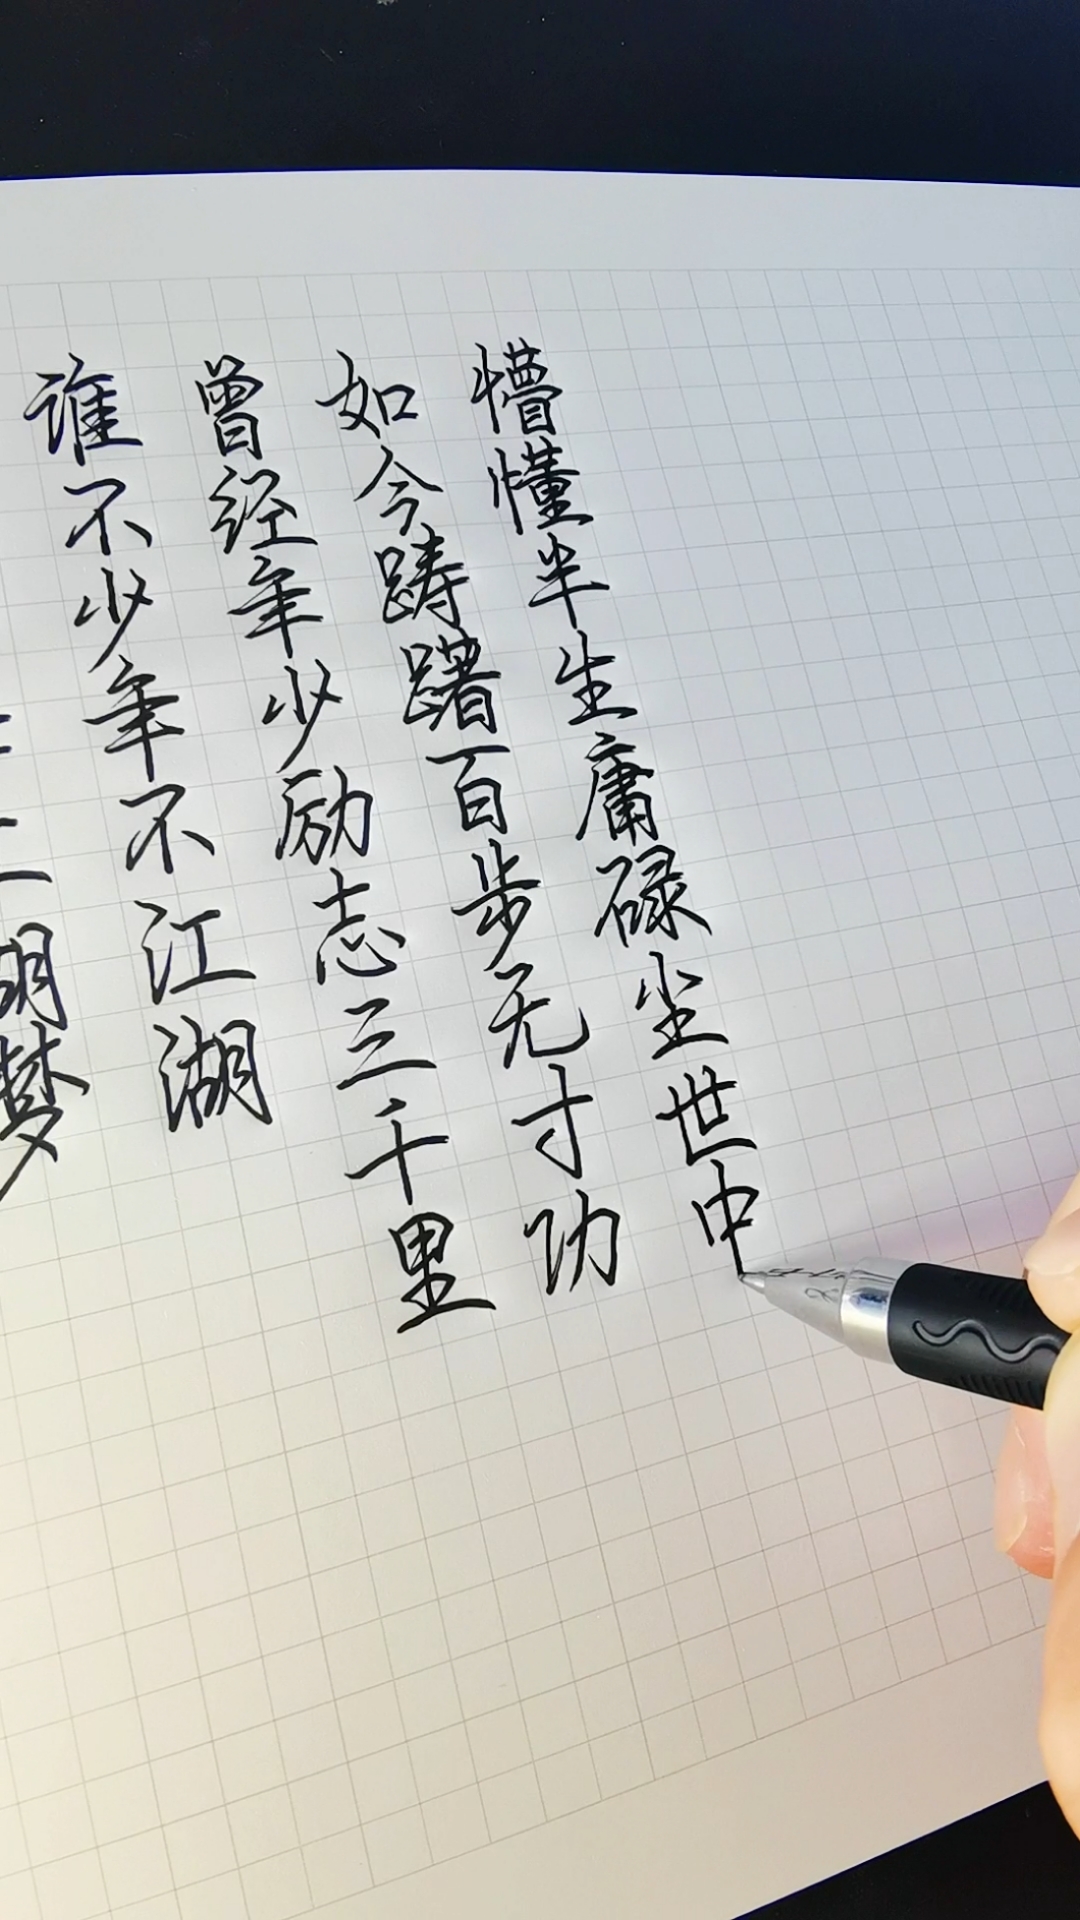 湖梦
谁不少年不江湖
曾经年少励志三千里
如今踌躇百步无寸功
懵懂半生庸碌尘世中